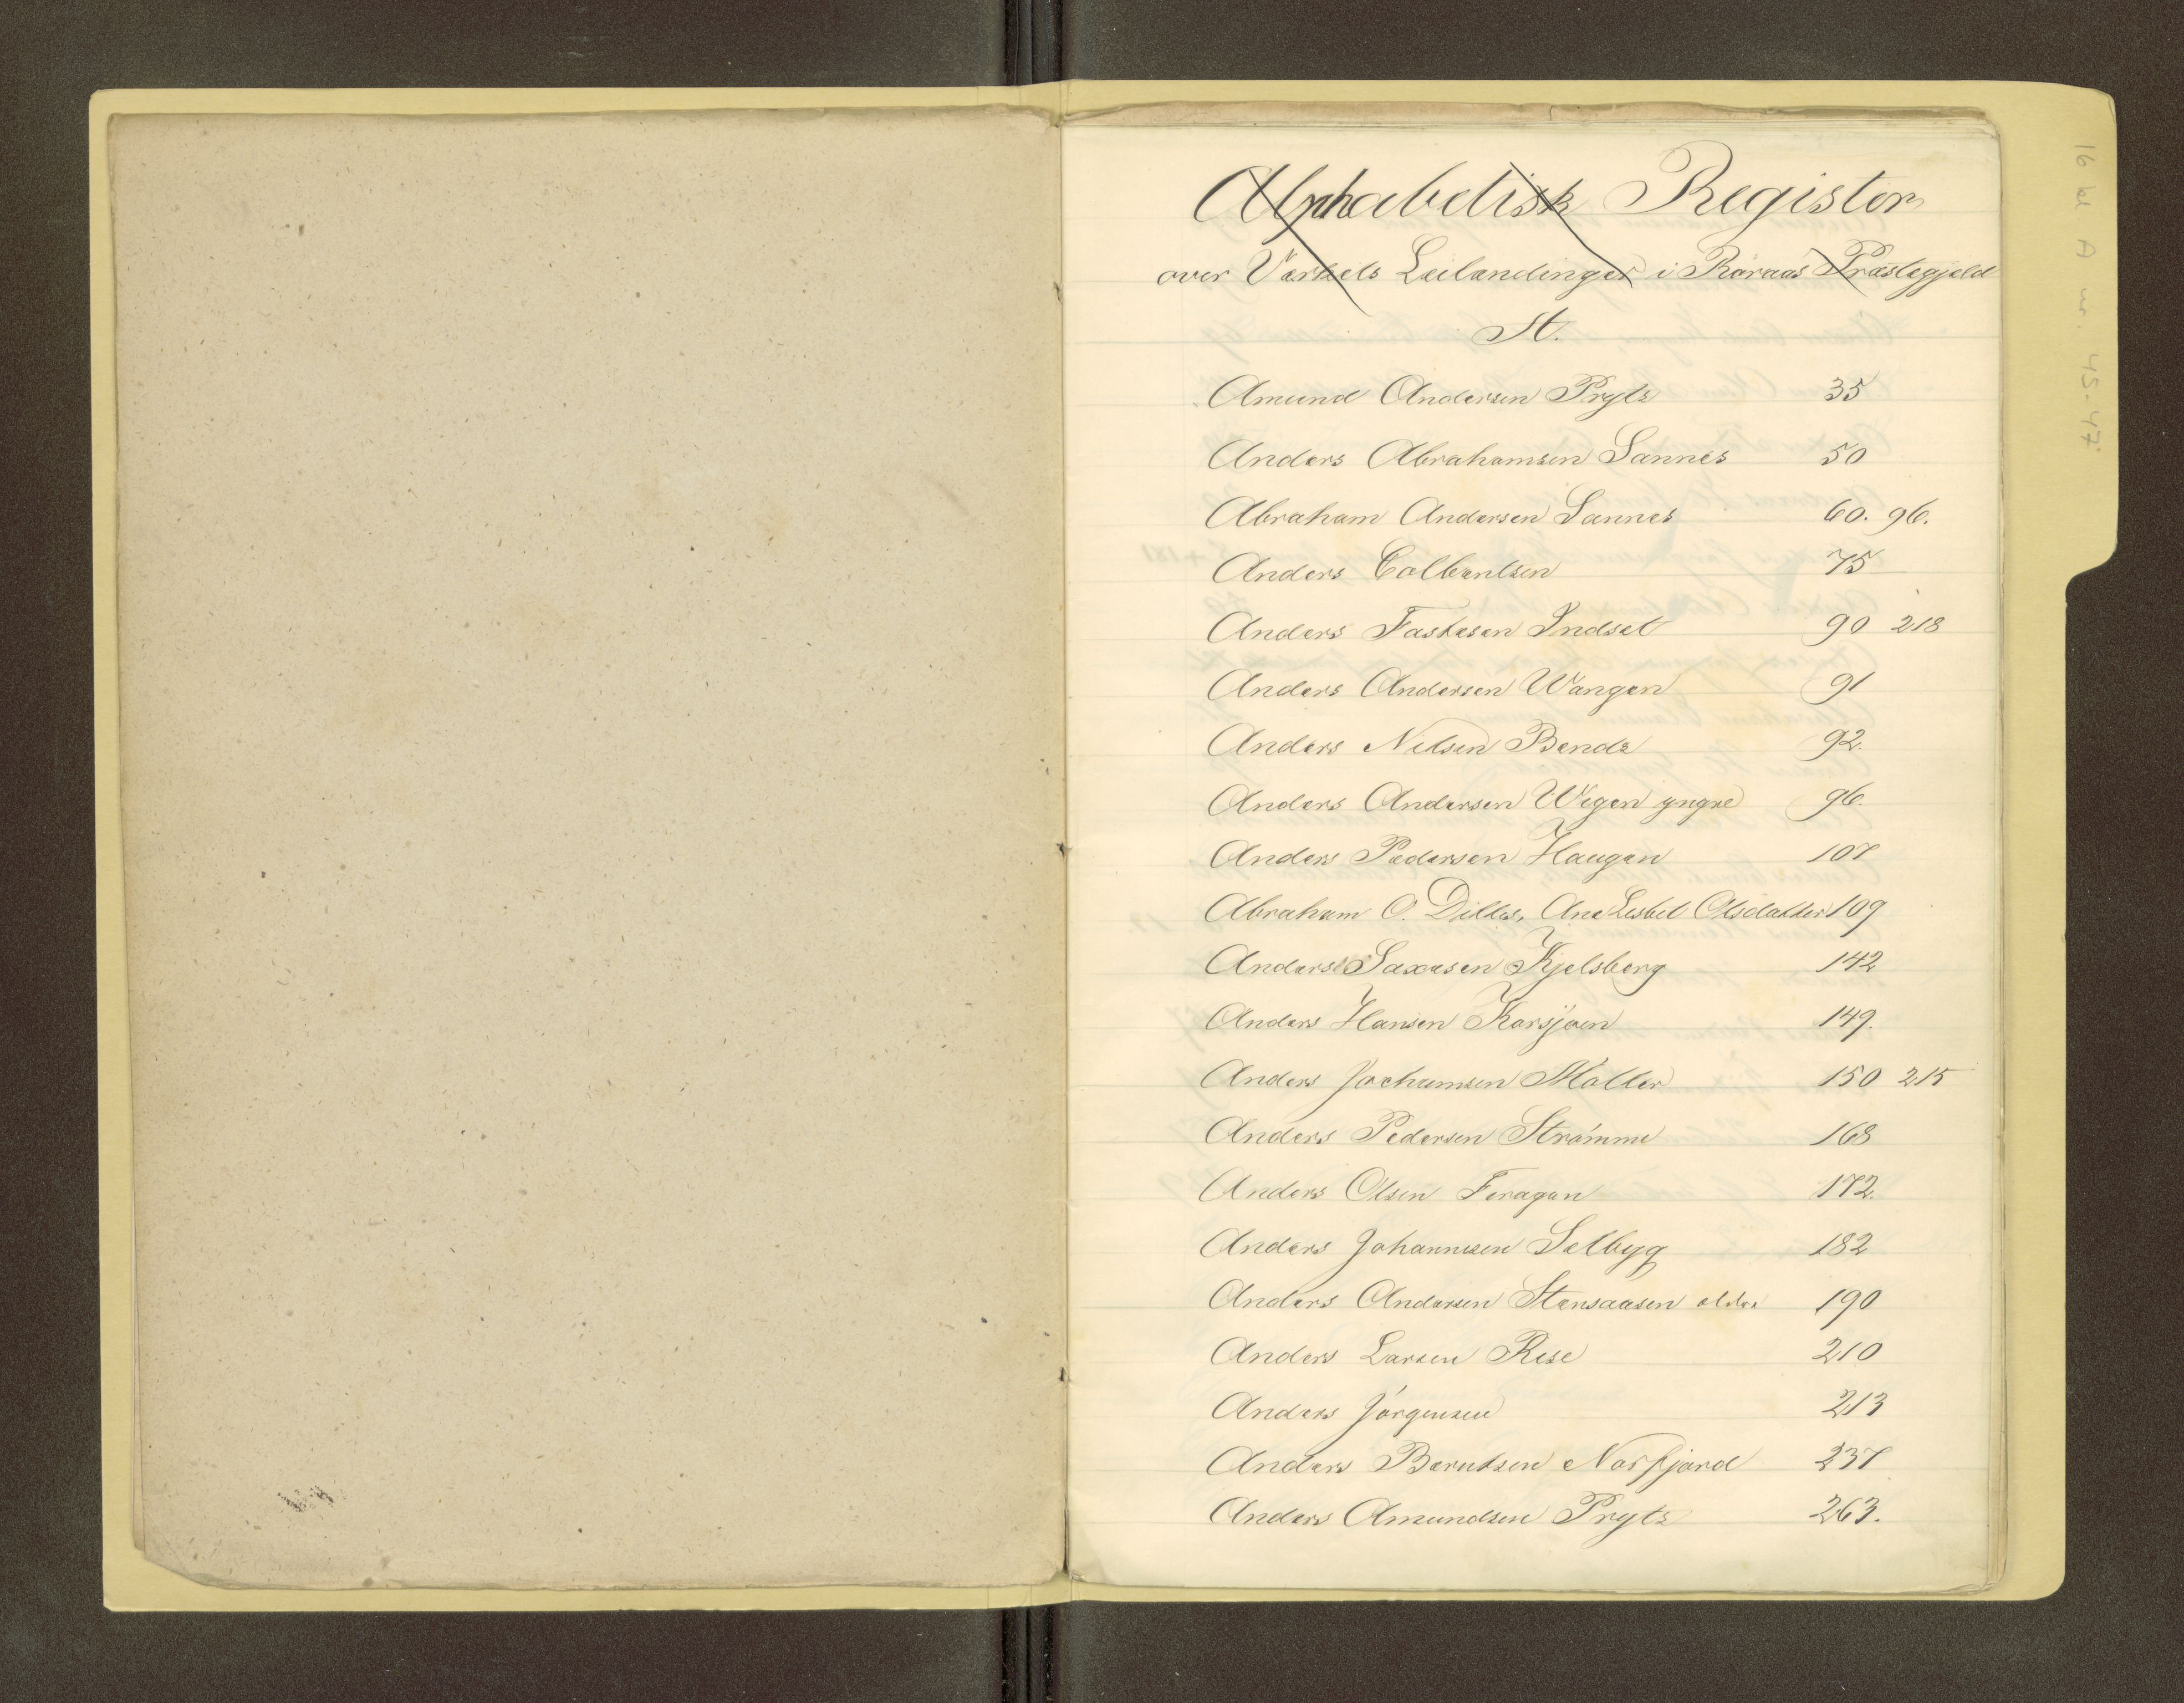 Alphabetisk Register
over Värkets Leilændinger i Röraas Præstegjeld
A.
Amund Andersen Prytz 35
Anders Abrahamsen Sannes 50
Abraham Andersen Sannes 60. 96.
Anders Colbentsen 75
Anders Fastesen Indset 90 218
Anders Andersen Wangen 91
Anders Nilsen Bendz 92.
Anders Andersen Wegen yngre 96.
Anders Pedersen Haugen 107
Abraham O. Dilles, Ane Lisbet Olsdatter 109
Anders Saxesen Kjelsberg 142
Anders Hansen Korsjøen 149.
Anders Jochumsen Møller 150 215
Anders Pedersen Strömme 168
Anders Olsen Feragen 172.
Anders Johannesen Selbyg 182
Anders Andersen Stensaasen elder 190
Anders Larsen Rise 210
Anders Jörgensen 213
Anders Berntsen Norfjord 237
Anders Amundsen Prytz 263.
16 bl A nr. 45-47